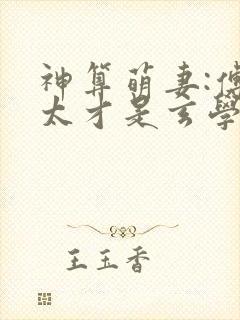 神算萌妻:傅
太才是玄學
王玉香